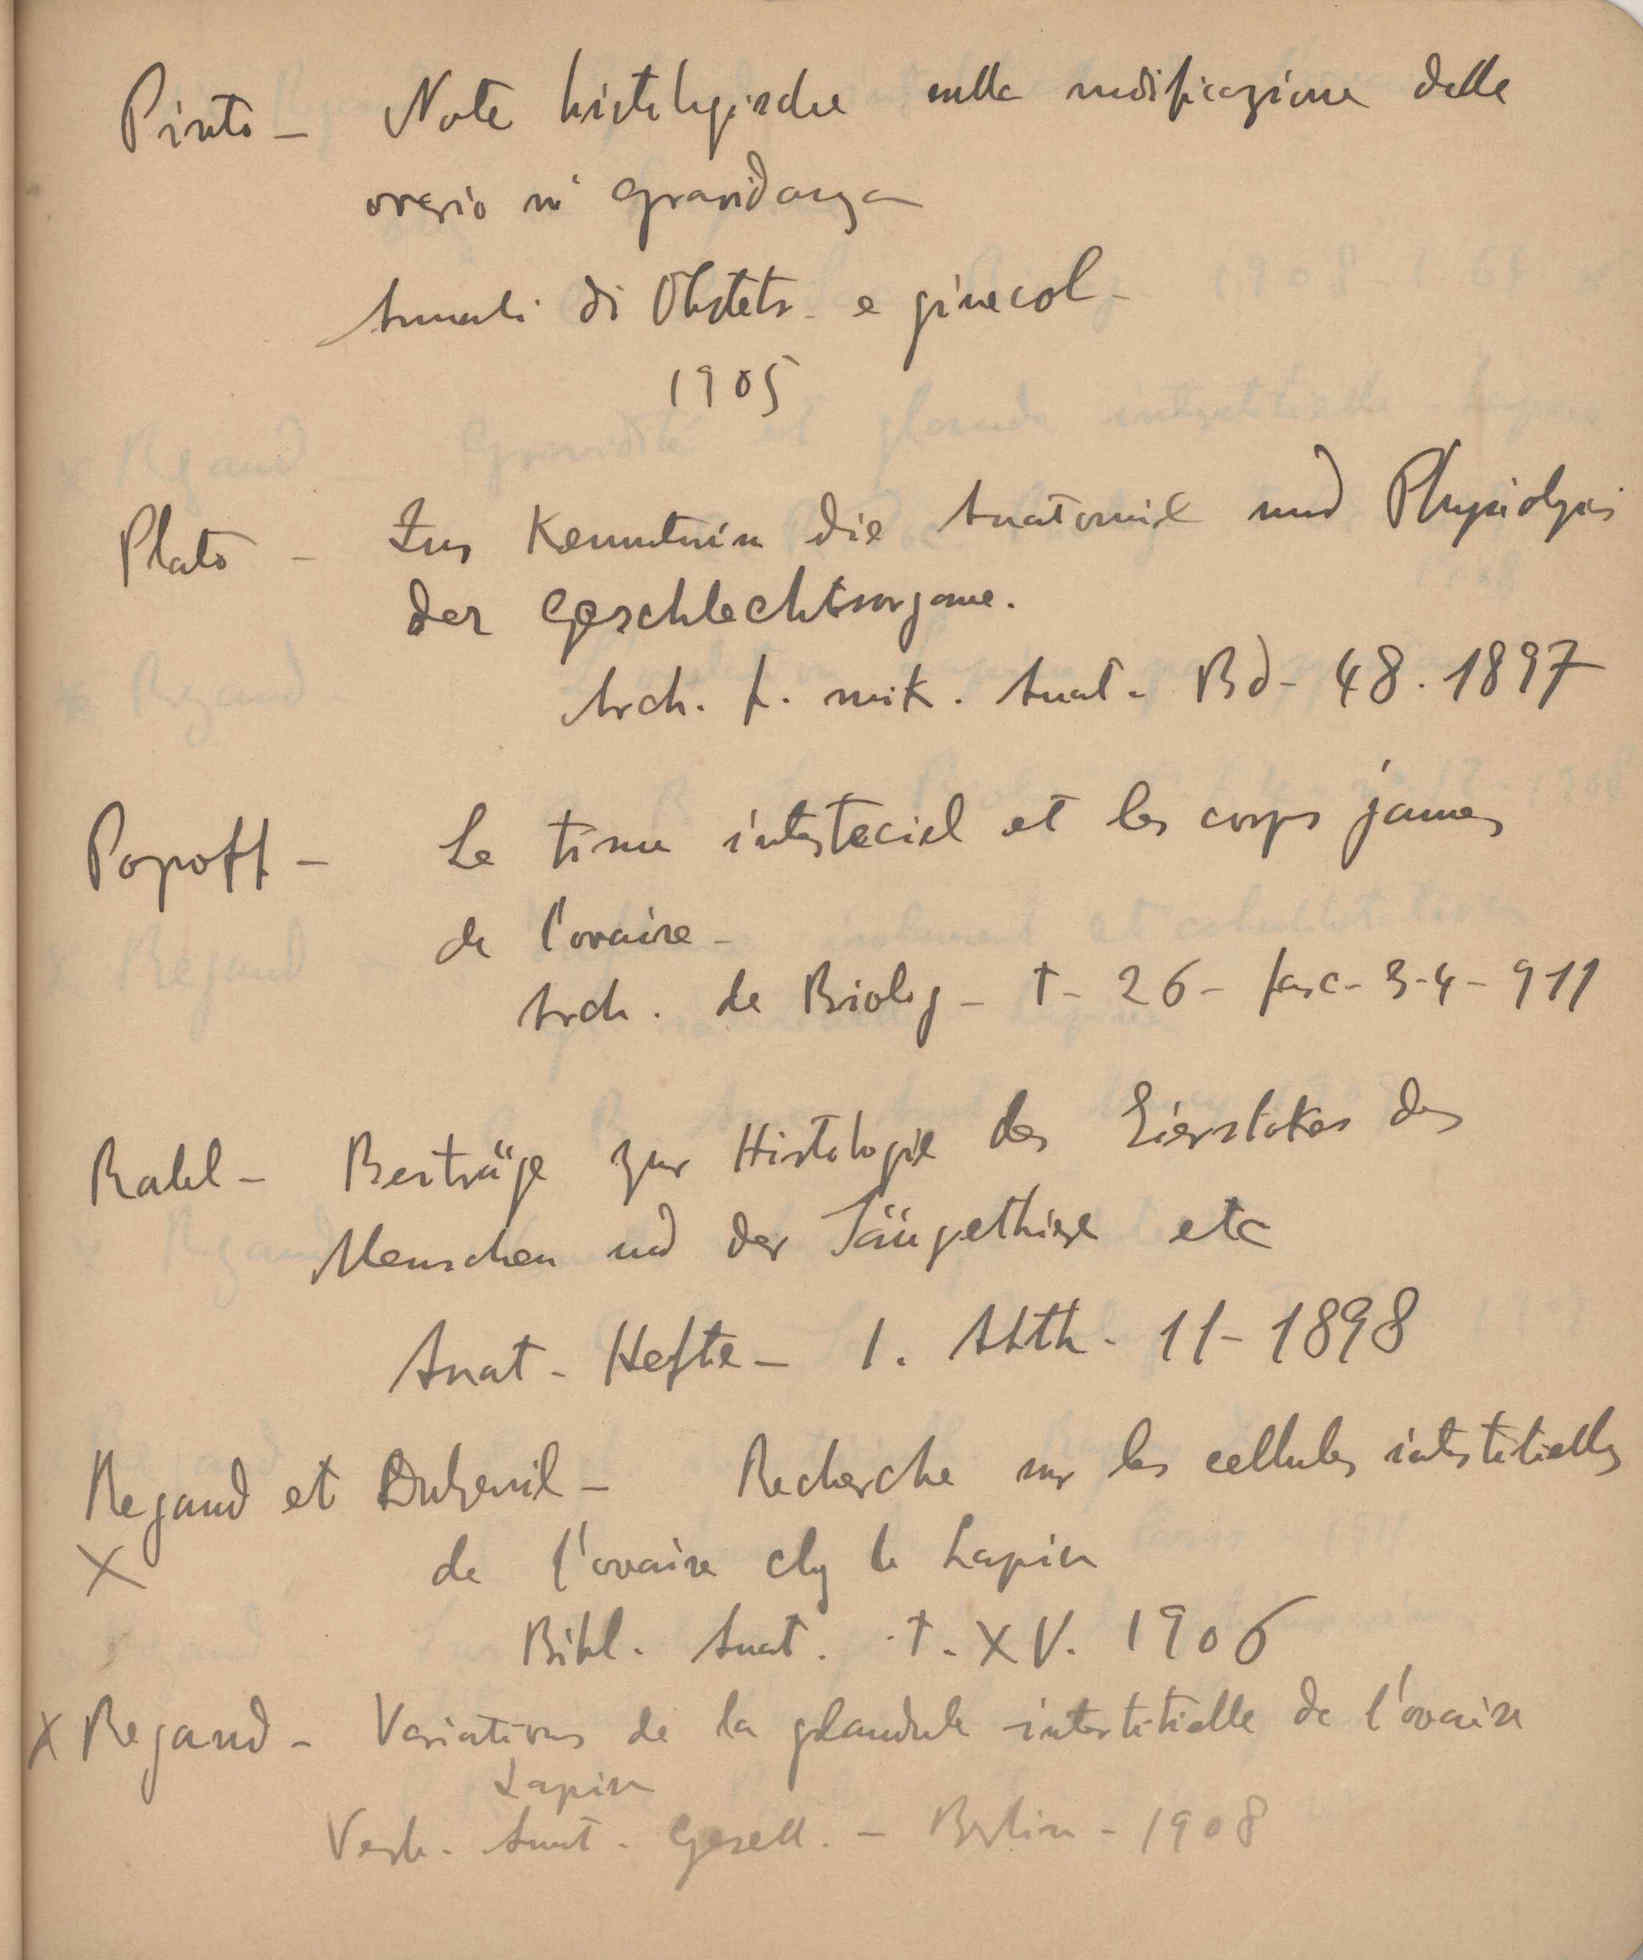 Pinto - Note histologische sulla modificazione delle
ovario in gravidanza
Annali di Obstetr. e ginecol-
1905
Plato - Zur Kenntniss die Anatomie und Physiologie
der Geschlechtsorgane.
Arch. f. mik. Anat- Bd- 48. 1897
Popoff - Le tissu intersteciel et les corps jaunes
de l'ovaire -
Arch. de Biolog - t- 26 - fasc- 3-4 - 911
Rabl - Beiträge zur Histologie des Eierstokes des
Menschen und der Säugethiere etc
Anat - Hefte - 1. Abth - 11 - 1898
Regaud et Dubreuil - Recherche sur les cellules interstitielles
X de l'ovaire chez le Lapin
Bibl. Anat. t. XV. 1906
X Regaud - Variations de la glandule interstitielle de l'ovaire
Lapin
Verh. Anat. Gesell. - Berlin - 1908